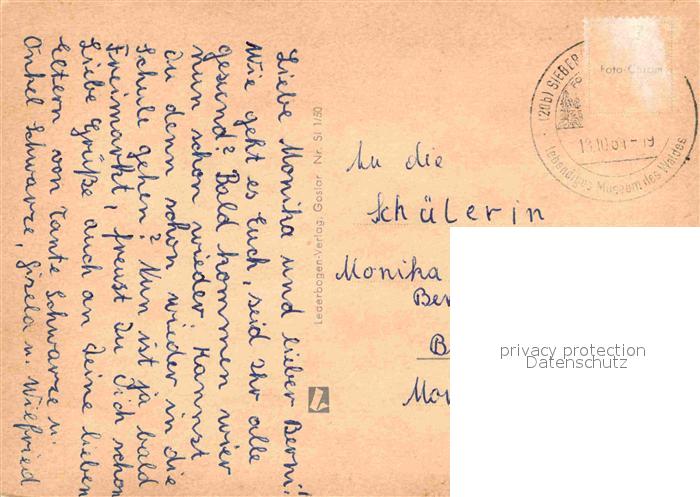 Liebe Monika und lieber Berni!
Wie geht es Euch, seid Ihr alle
gesund? Bald kommen wier
nun schon wieder Kannst
du denn schon wieder in die
Schule gehen? Nun ist ja bald
Freimarkt, freust Du Dich schon
Liebe Grüße auch an Deine lieben
Eltern von Tante Schwarze u.
Onkel Schwarze, Gisela u. Wielfried
Lederbogen-Verlag, Goslar Nr. SI 1/50
(20b) SIEBER
13.10.61-19
Lebendiges Museum des Waldes
Foto-Chrom
An die
Schülerin
Monika
privacy protection
Datenschutz